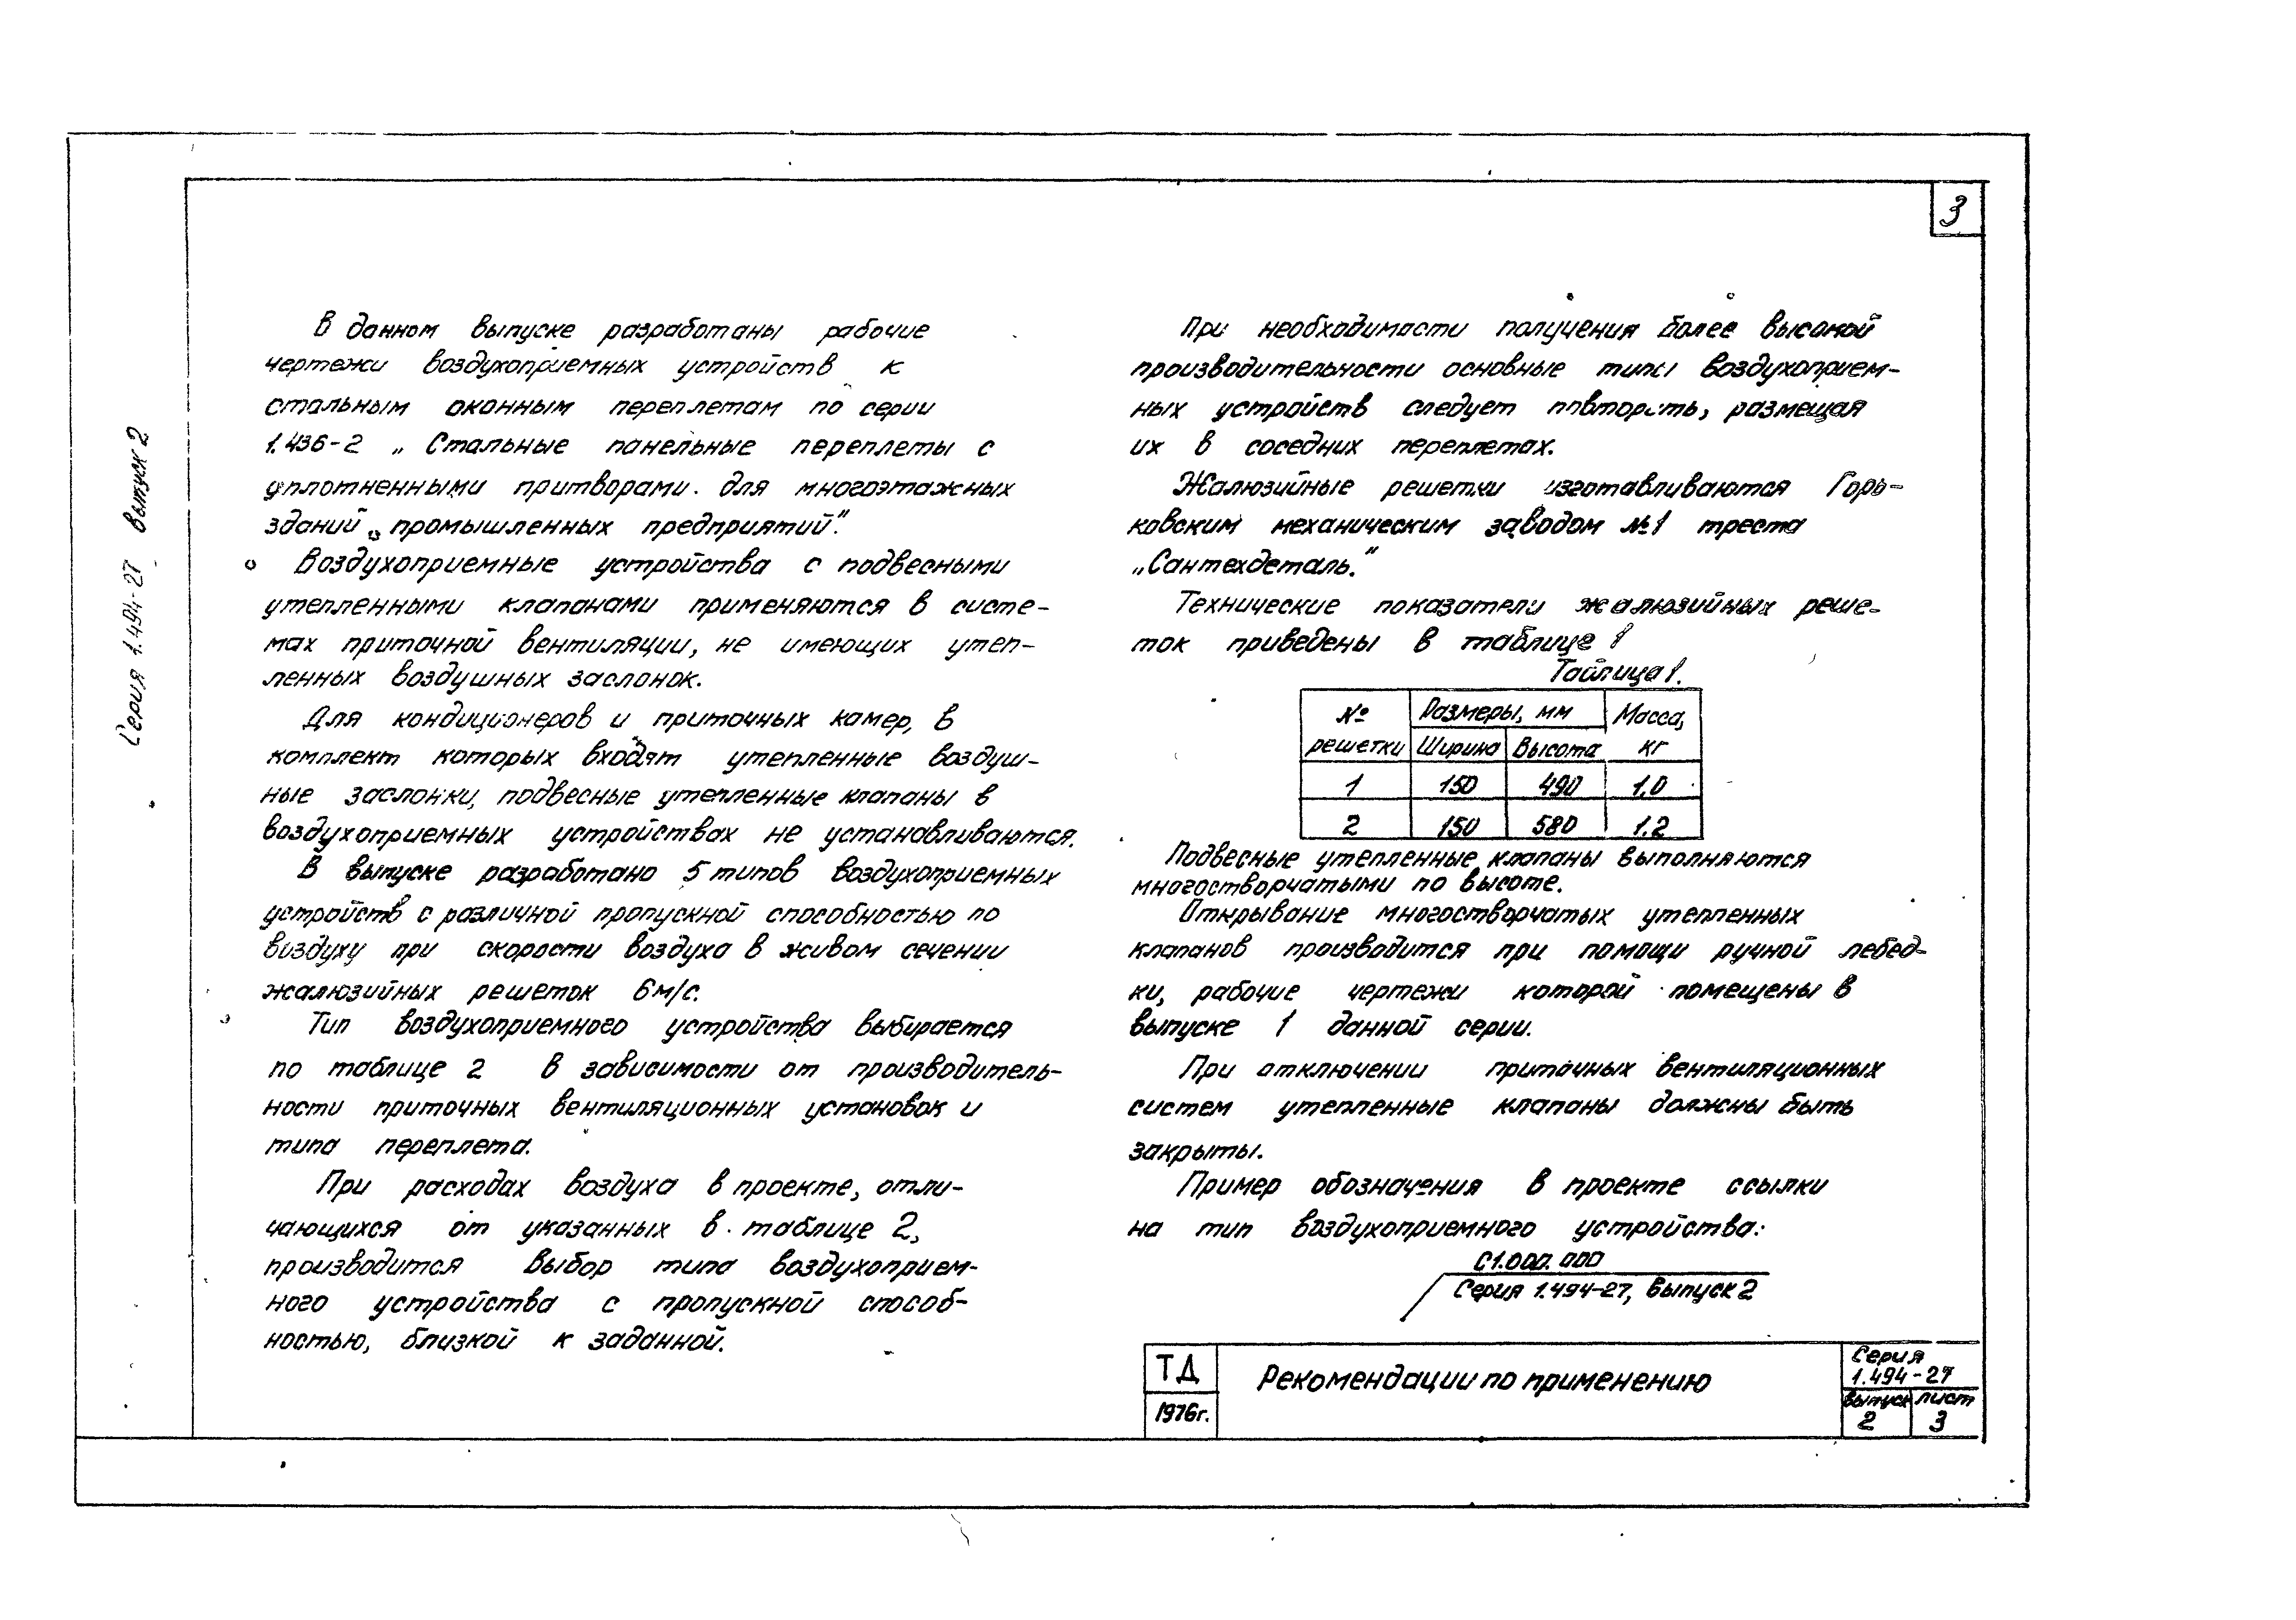 3
Серия 1.494-27 Выпуск 2
В данном выпуске разработаны рабочие
чертежи воздухоприемных устройств к
стальным оконным переплетам по серии
1.436-2 „Стальные панельные переплеты с
уплотненными притворами для многоэтажных
зданий промышленных предприятий."
Воздухоприемные устройства с подвесными
утепленными клапанами применяются в систе-
мах приточной вентиляции, не имеющих утеп-
ленных воздушных заслонок.
Для кондиционеров и приточных камер, в
комплект которых входят утепленные воздуш-
ные заслонки, подвесные утепленные клапаны в
воздухоприемных устройствах не устанавливаются.
В выпуске разработано 5 типов воздухоприемных
устройств с различной пропускной способностью по
воздуху при скорости воздуха в живом сечении
жалюзийных решеток 6м/с.
Тип воздухоприемного устройства выбирается
по таблице 2 в зависимости от производитель-
ности приточных вентиляционных установок и
типа переплета.
При расходах воздуха в проекте, отли-
чающихся от указанных в таблице 2,
производится выбор типа воздухоприем-
ного устройства с пропускной способ-
ностью, близкой к заданной.
При необходимости получения более высокой
производительности основные типы воздухоприем-
ных устройств следует повторить, размещая
их в соседних переплетах.
Жалюзийные решетки изготавливаются Горь-
ковским механическим заводом №1 треста
„Сантехдеталь."
Технические показатели жалюзийных реше-
ток приведены в таблице 1
Таблица 1.
№ решетки Размеры, мм Масса, кг
Ширина Высота
1 150 490 1.0
2 150 580 1.2
Подвесные утепленные клапаны выполняются
многостворчатыми по высоте.
Открывание многостворчатых утепленных
клапанов производится при помощи ручной лебед-
ки, рабочие чертежи которой помещены в
выпуске 1 данной серии.
При отключении приточных вентиляционных
систем утепленные клапаны должны быть
закрыты.
Пример обозначения в проекте ссылки
на тип воздухоприемного устройства:
С1.000.000
Серия 1.494-27, Выпуск 2
ТД
1976г.
Рекомендации по применению
Серия
1.494-27
Выпуск лист
2 3